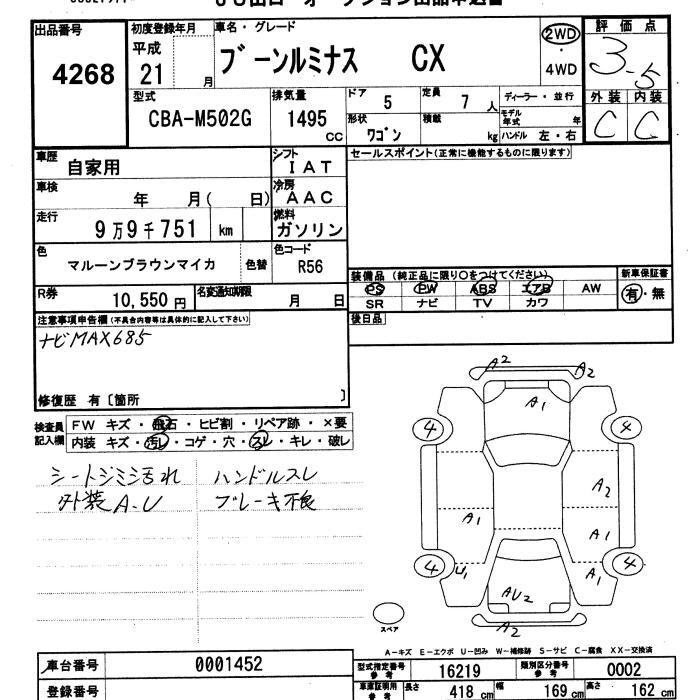 出品番号 初度登録年月 車名・グレード 2WD 評価点
4268 平成 21 月 ブーンルミナス CX ・ 4WD 3.5
型式 排気量 ドア 5 定員 7 人 ディーラー・並行 外装 内装
CBA-M502G 1495 cc 形状 ワゴン 積載 kg モデル年式 年 C C
ハンドル 左・右
車歴 自家用 シフト IAT セールスポイント(正常に機能するものに限ります)
車検 年 月( 日) 冷房 AAC
走行 9万9千751 km 燃料 ガソリン
色 マルーンブラウンマイカ 色替 色コード R56
装備品 (純正品に限り○をつけてください) 新車保証書
R券 10,550円 名変通知期限 月 日 PS PW ABS エアB AW 有・無
SR ナビ TV カワ
注意事項申告欄(不具合内容等は具体的に記入して下さい) 後日品
ナビMAX685
修復歴 有〔箇所 〕
A2 A2
A1
検査員記入欄 FW キズ・飛石・ヒビ割・リペア跡・×要
内装 キズ・汚レ・コゲ・穴・スレ・キレ・破レ
4 4
シートシミ汚れ ハンドルスレ
外装A-U ブレーキ不良
A2
A1 A1
4 U1 A1 4
AU2
スペア A2
A-キズ E-エクボ U-凹み W-補修跡 S-サビ C-腐食 XX-交換済
車台番号 0001452 型式指定番号 参考 16219 類別区分番号 参考 0002
登録番号 車庫証明用 参考 長さ 418 cm 幅 169 cm 高さ 162 cm